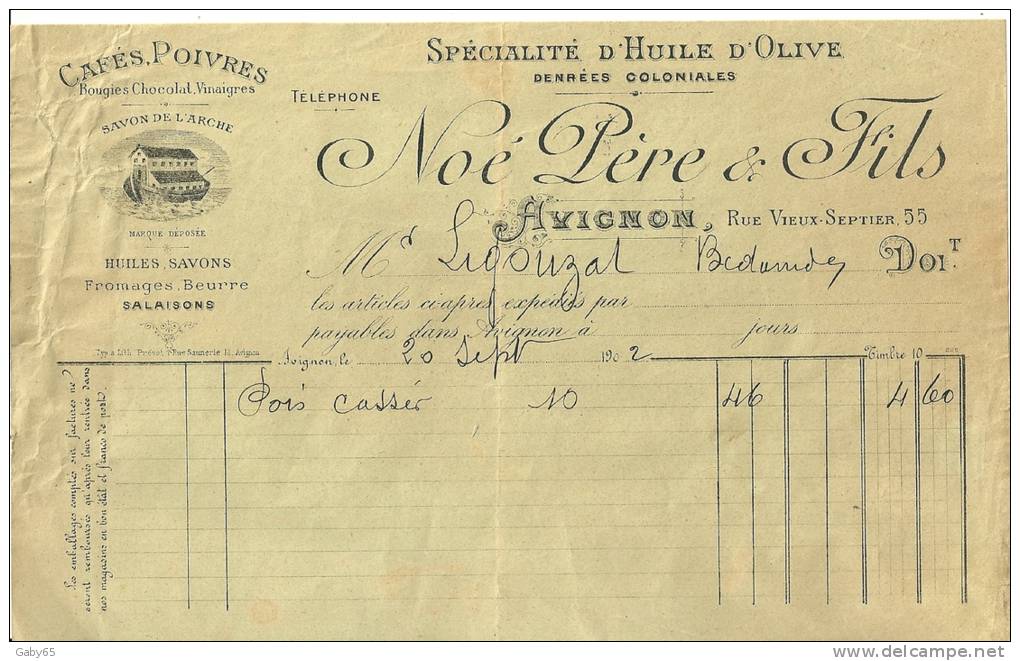 CAFÉS, POIVRES
Bougies Chocolat, Vinaigres
SAVON DE L'ARCHE
MARQUE DÉPOSÉE
HUILES, SAVONS
Fromages, Beurre
SALAISONS
Typ & Lith. Prévot, Rue Saunerie 11, Avignon
SPÉCIALITÉ D'HUILE D'OLIVE
DENRÉES COLONIALES
TÉLÉPHONE
Noé Père & Fils
AVIGNON, RUE VIEUX-SEPTIER, 55
Mr Ligouzat DOIT
les articles ci-après expédiés par
payables dans Avignon à jours
Avignon, le 20 Sept 1902 Timbre 10
Pois Cassér 10 46 4 60
Les emballages comptés sur factures ne
seront remboursés qu'après leur rentrée dans
nos magasins en bon état et francs de port.
Gaby65
www.delcampe.net